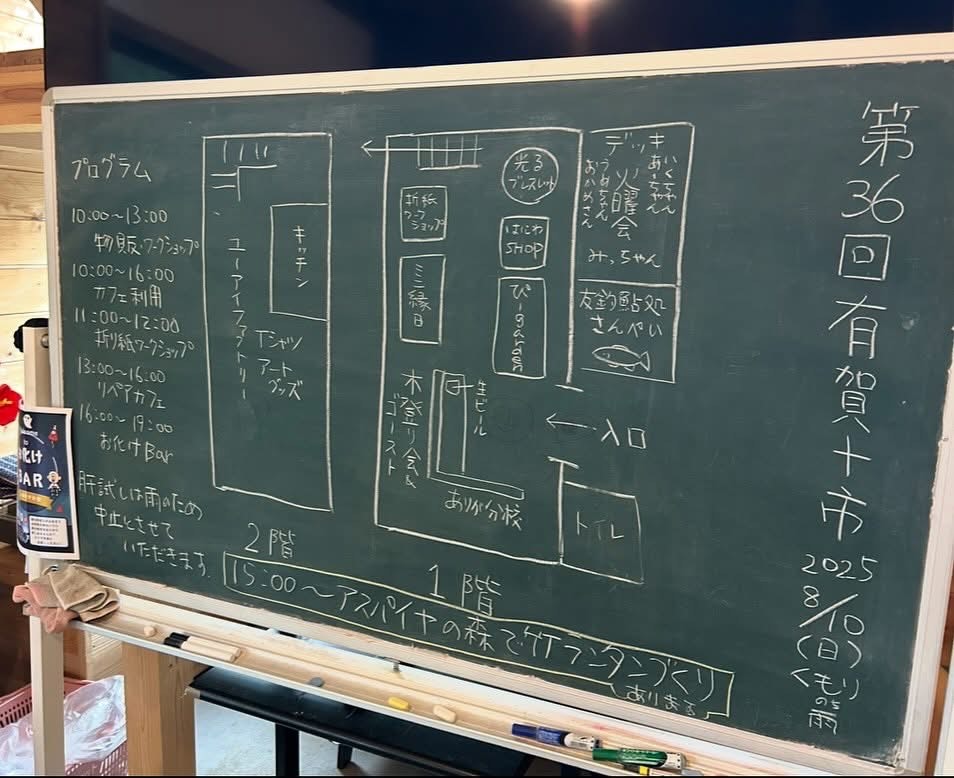 第36回有賀十市
2025
8/10
(日)
くもり
のち
雨
プログラム
10:00～13:00
物販・ワークショップ
10:00～16:00
カフェ利用
11:00～12:00
折り紙ワークショップ
13:00～16:00
リペアカフェ
16:00～19:00
お化けBar
肝試しは雨のため
中止とさせて
いただきます。
キッチン
ユーアイファクトリー
Tシャツ
アート
グッズ
2階
光る
ブレスレット
折紙
ワーク
ショップ
はにわ
SHOP
ミニ縁日
ぴ-garden
生ビール
木登り会&
ゴースト
ありが分校
1階
デッキ
火曜会
いくちゃん
あいちゃん
うめちゃん
おかめさん
みっちゃん
友釣鮎処
さんぺい
← 入口
トイレ
15:00～アスパイヤの森で竹ランタンづくり
あります
BAR